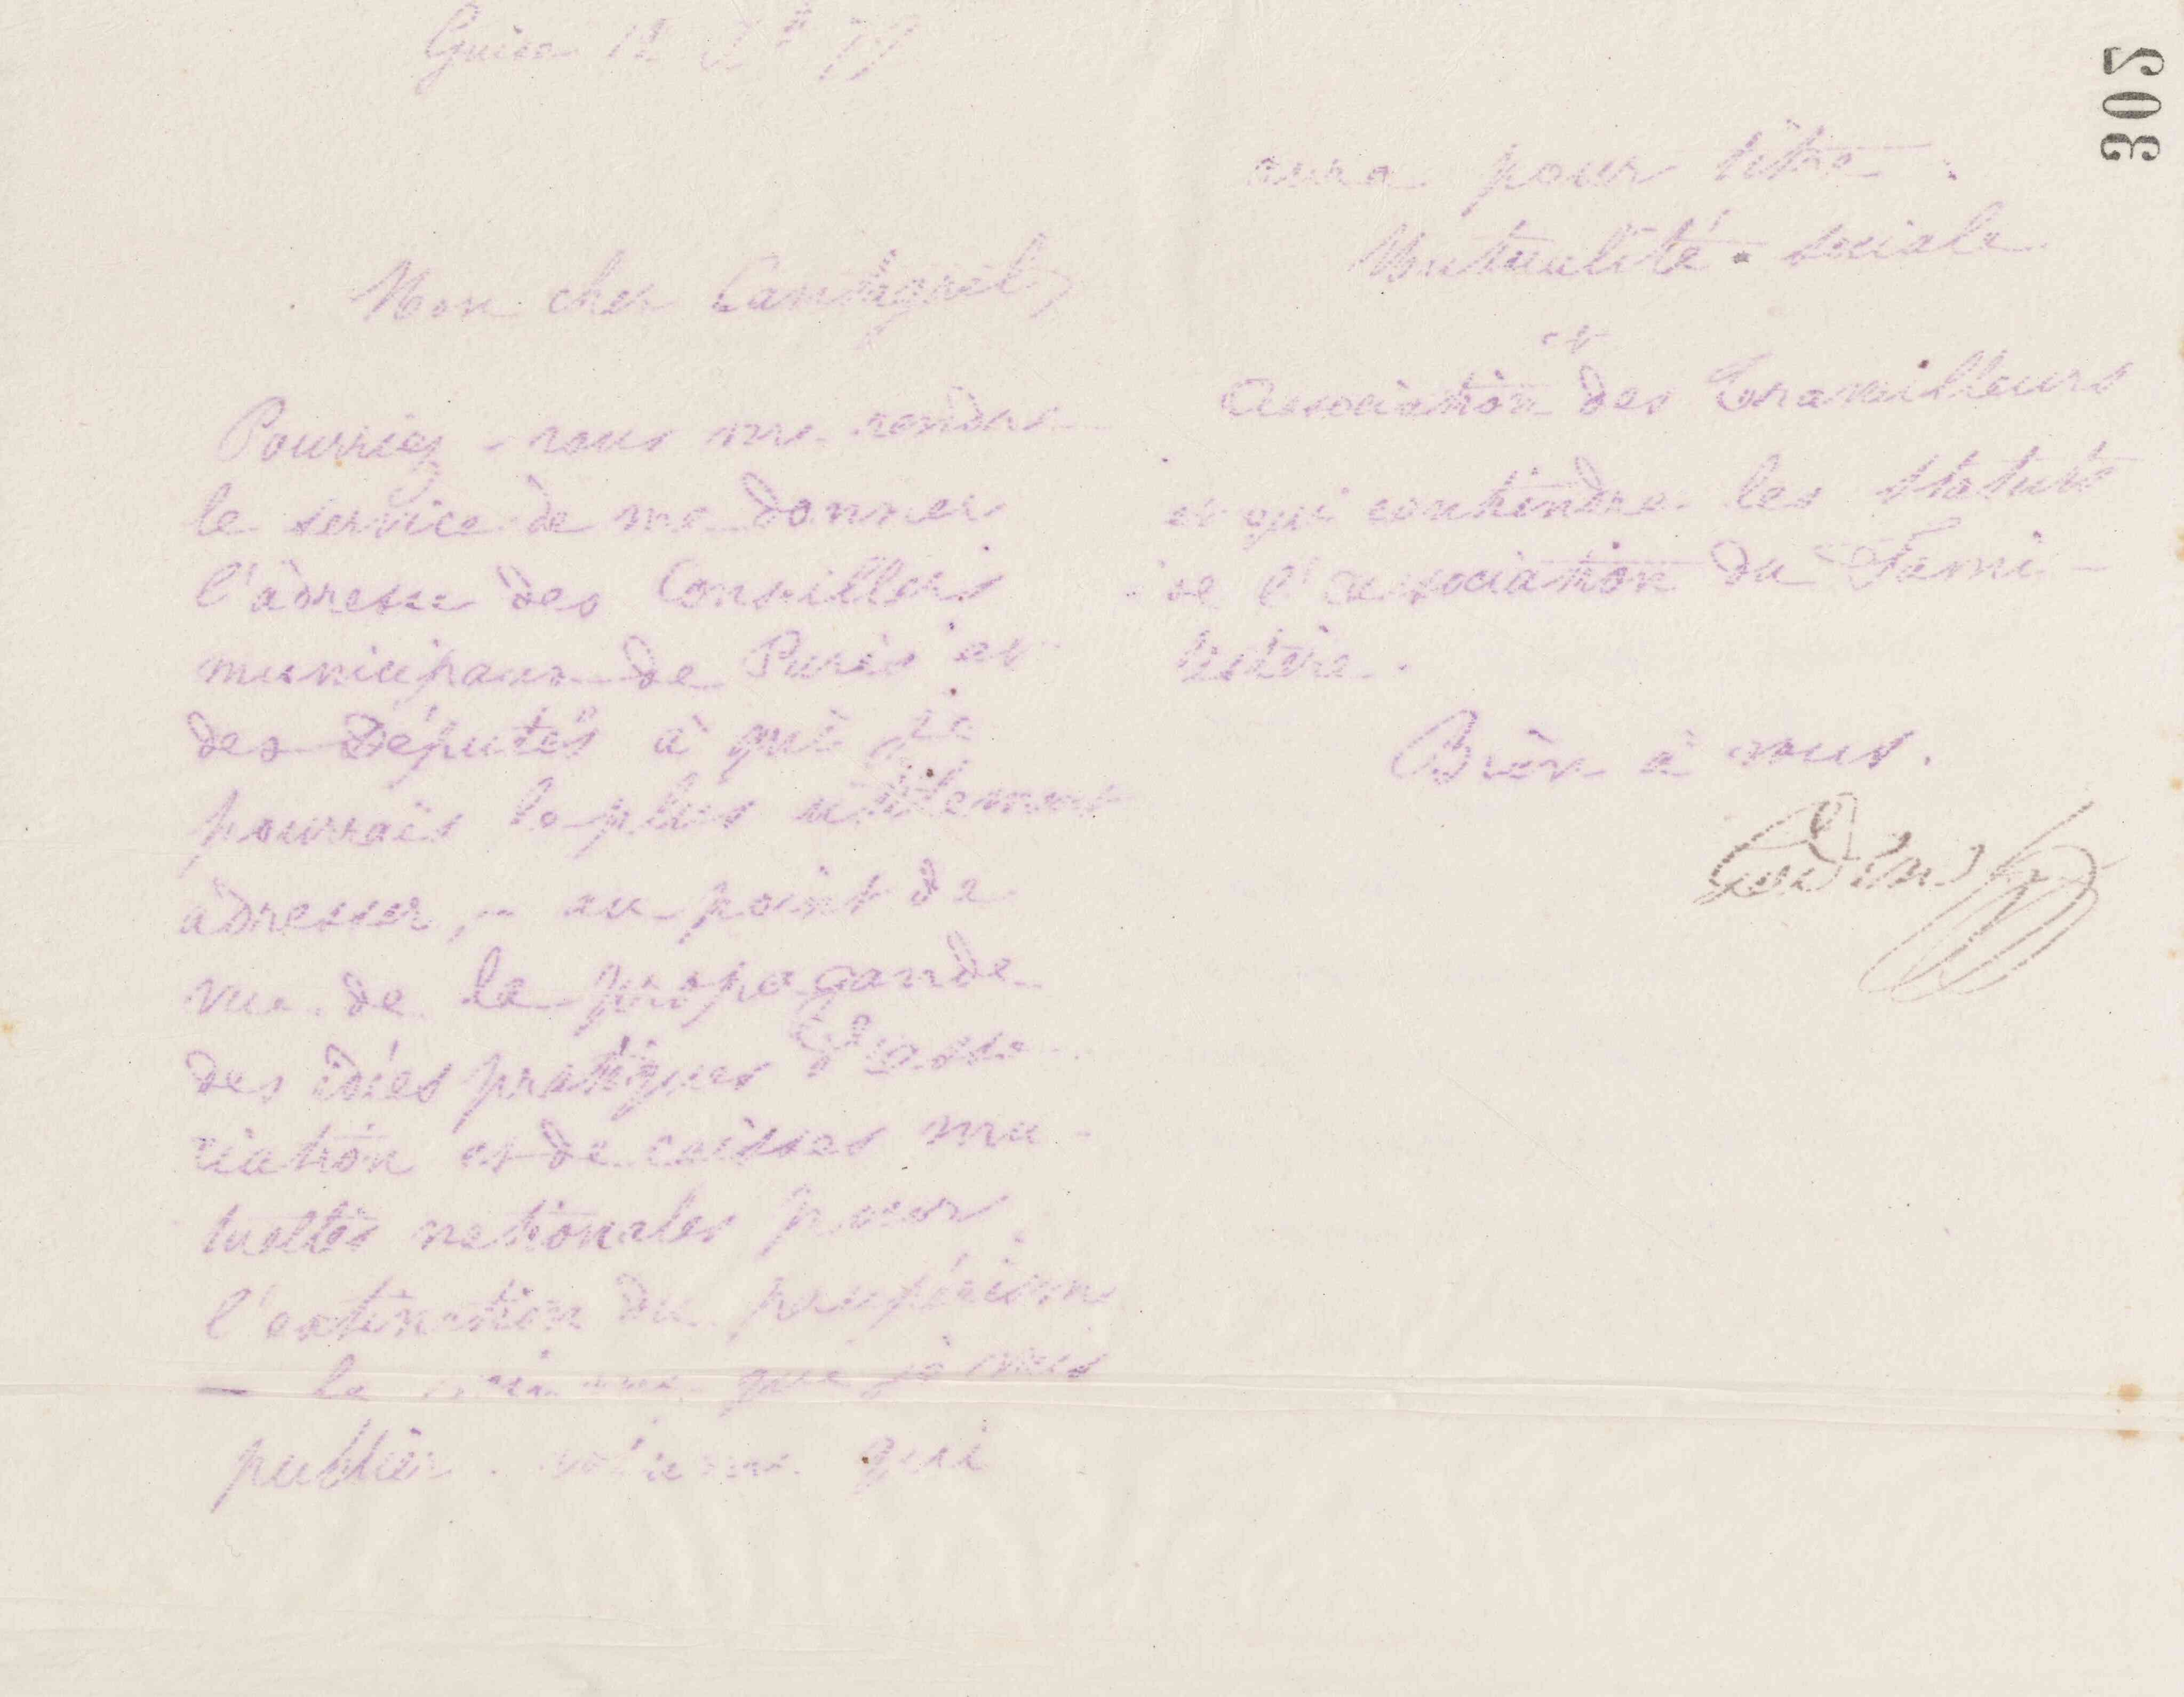 Guise 12 Xbre 79
Mon cher Cantagrel,
Pourriez-vous me rendre
le service de me donner
l'adresse des Conseillers
municipaux de Paris et
des Députés à qui je
pourrais le plus utilement
adresser, - au point de
vue de la propagande
des idées pratiques d'asso-
ciation et de caisses mu-
tuelles nationales pour
l'extinction du paupérisme
- le que je vais
publier qui
aura pour titre :
Mutualité sociale
et
Association des Travailleurs
et qui contiendra les statuts
de l'association du Fami-
listère.
Bien à vous.
Godin
305